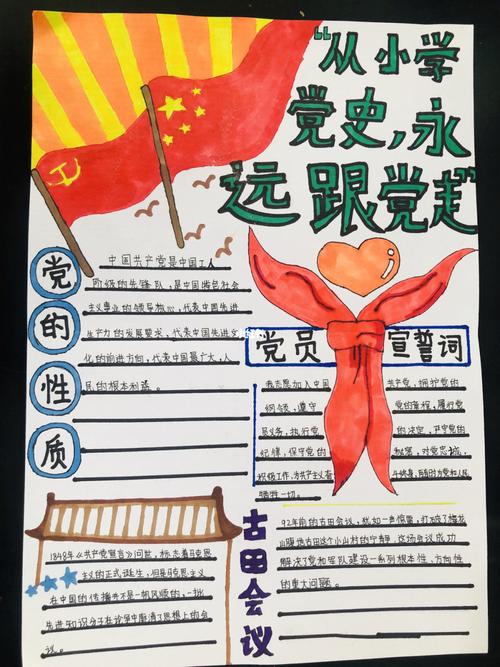 “从小学
党史,永
远跟党走”
党的性质
中国共产党是中国工人
阶级的先锋队,是中国
主义事业的领导核心,代表中国先进
生产力的发展要求,代表中国先进文
化的前进方向,代表中国最广大人
民的根本利益。
党员 宣誓词
我志愿加入中国 共产党,拥护党的
纲领,遵守 党的章程,履行党
员义务,执行党 的决定,严守党的
纪律,保守党的 秘密,对党忠诚,
积极工作,为共产主义奋 斗终身,随时为党和人民
牺牲一切。
1848年《共产党宣言》问世,标志着马克思
主义的正式诞生,但马克思主义
在中国的传播并不是一帆风顺的,一批
先进知识分子在论争中廓清了思想上的会
议。
古田会议
92年前的古田会议,犹如一声惊雷,打破了梅花
山腹地古田这个小山村的宁静。这场会议成功
解决了党和军队建设一系列根本性、方向性
的重大问题。